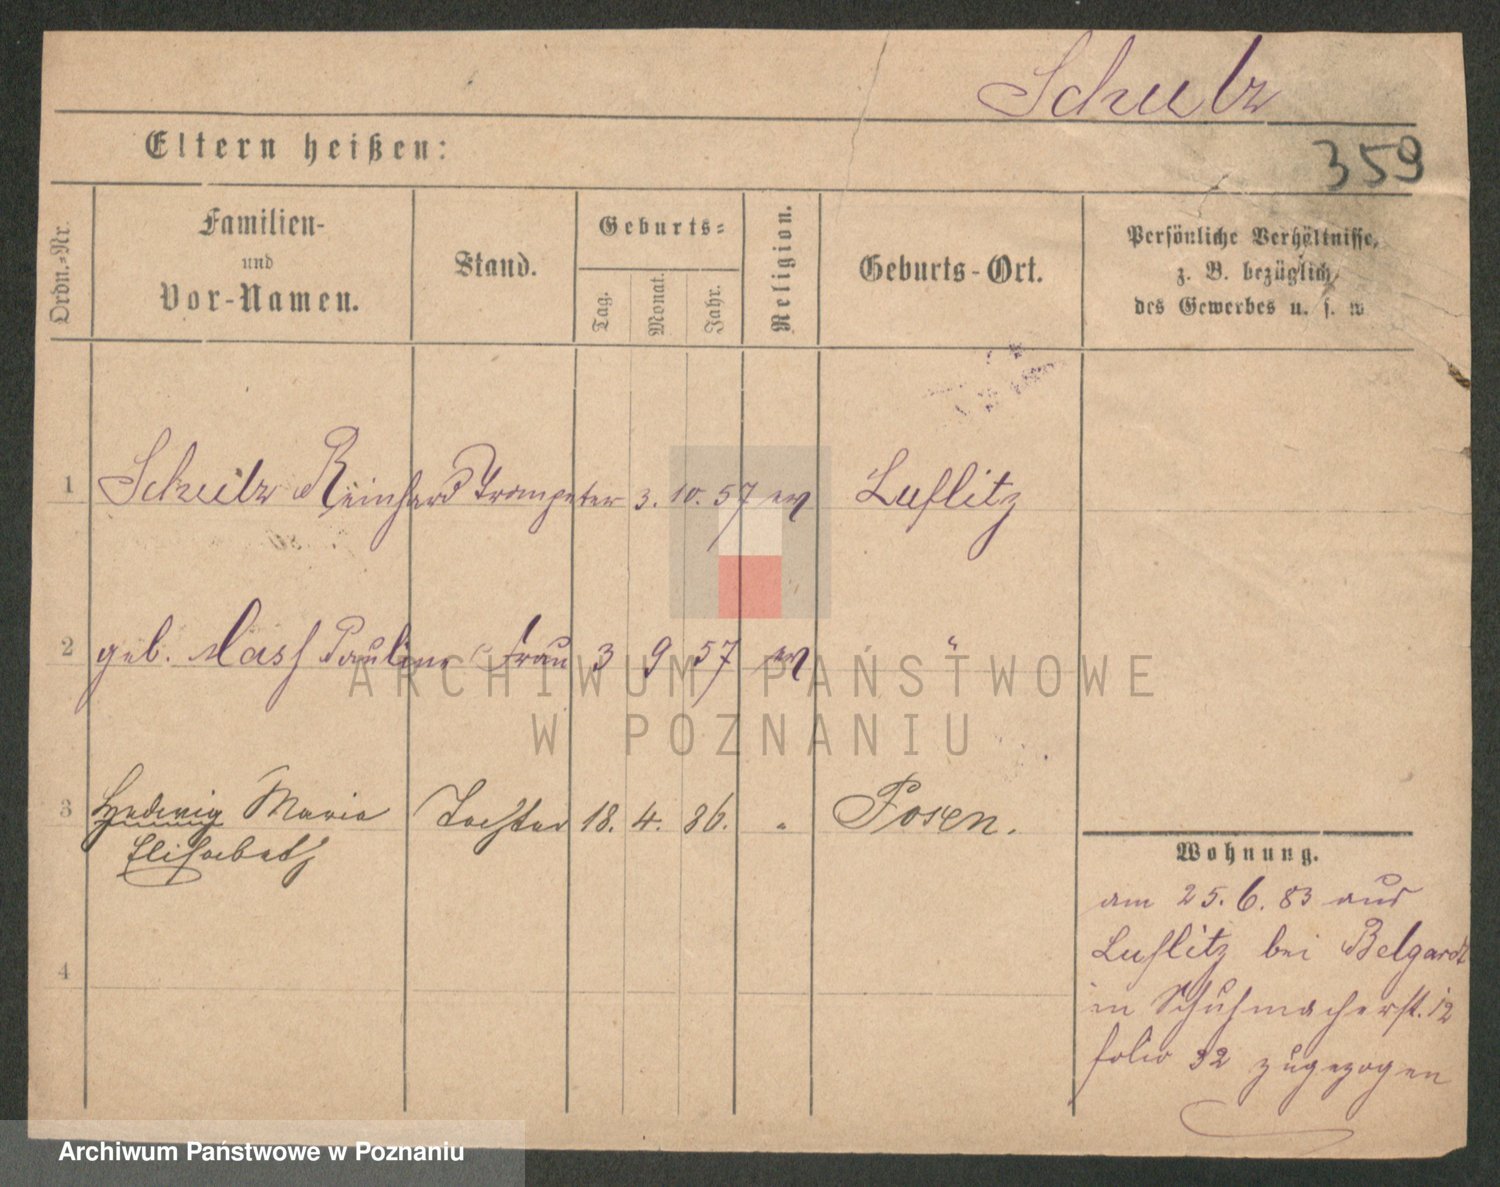 Schulz
359
Eltern heißen:
Ordn.-Nr.
Familien-
und
Vor-Namen.
Stand.
Geburts-
Tag.
Monat.
Jahr.
Religion.
Geburts-Ort.
Persönliche Verhältnisse,
z. B. bezüglich
des Gewerbes u. s. w
1 Schulz Reinhard Trompeter 3. 10. 57 ev
2 geb. Pauline Frau 3 9 57 ev "
3 Hedwig Maria Tochter 18. 4. 86. " Posen.
Elisabeth
4
Wohnung.
am 25. 6. 83 aus
bei Belgard
in Schuhmacherst. 12
folio 32 zugezogen
ARCHIWUM PAŃSTWOWE
W POZNANIU
Archiwum Państwowe w Poznaniu